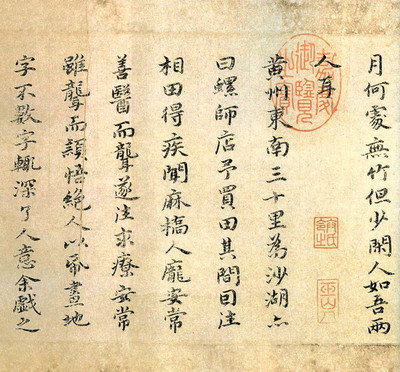 月何處無竹但少閑人如吾兩
人耳
黄州東南三十里為沙湖亦
曰螺師店予買田其間因往
相田得疾聞麻橋人龐安常
善醫而聾遂往求療安常
雖聾而穎悟絕人以帋畫地
字不數字輒深了人意余戲之